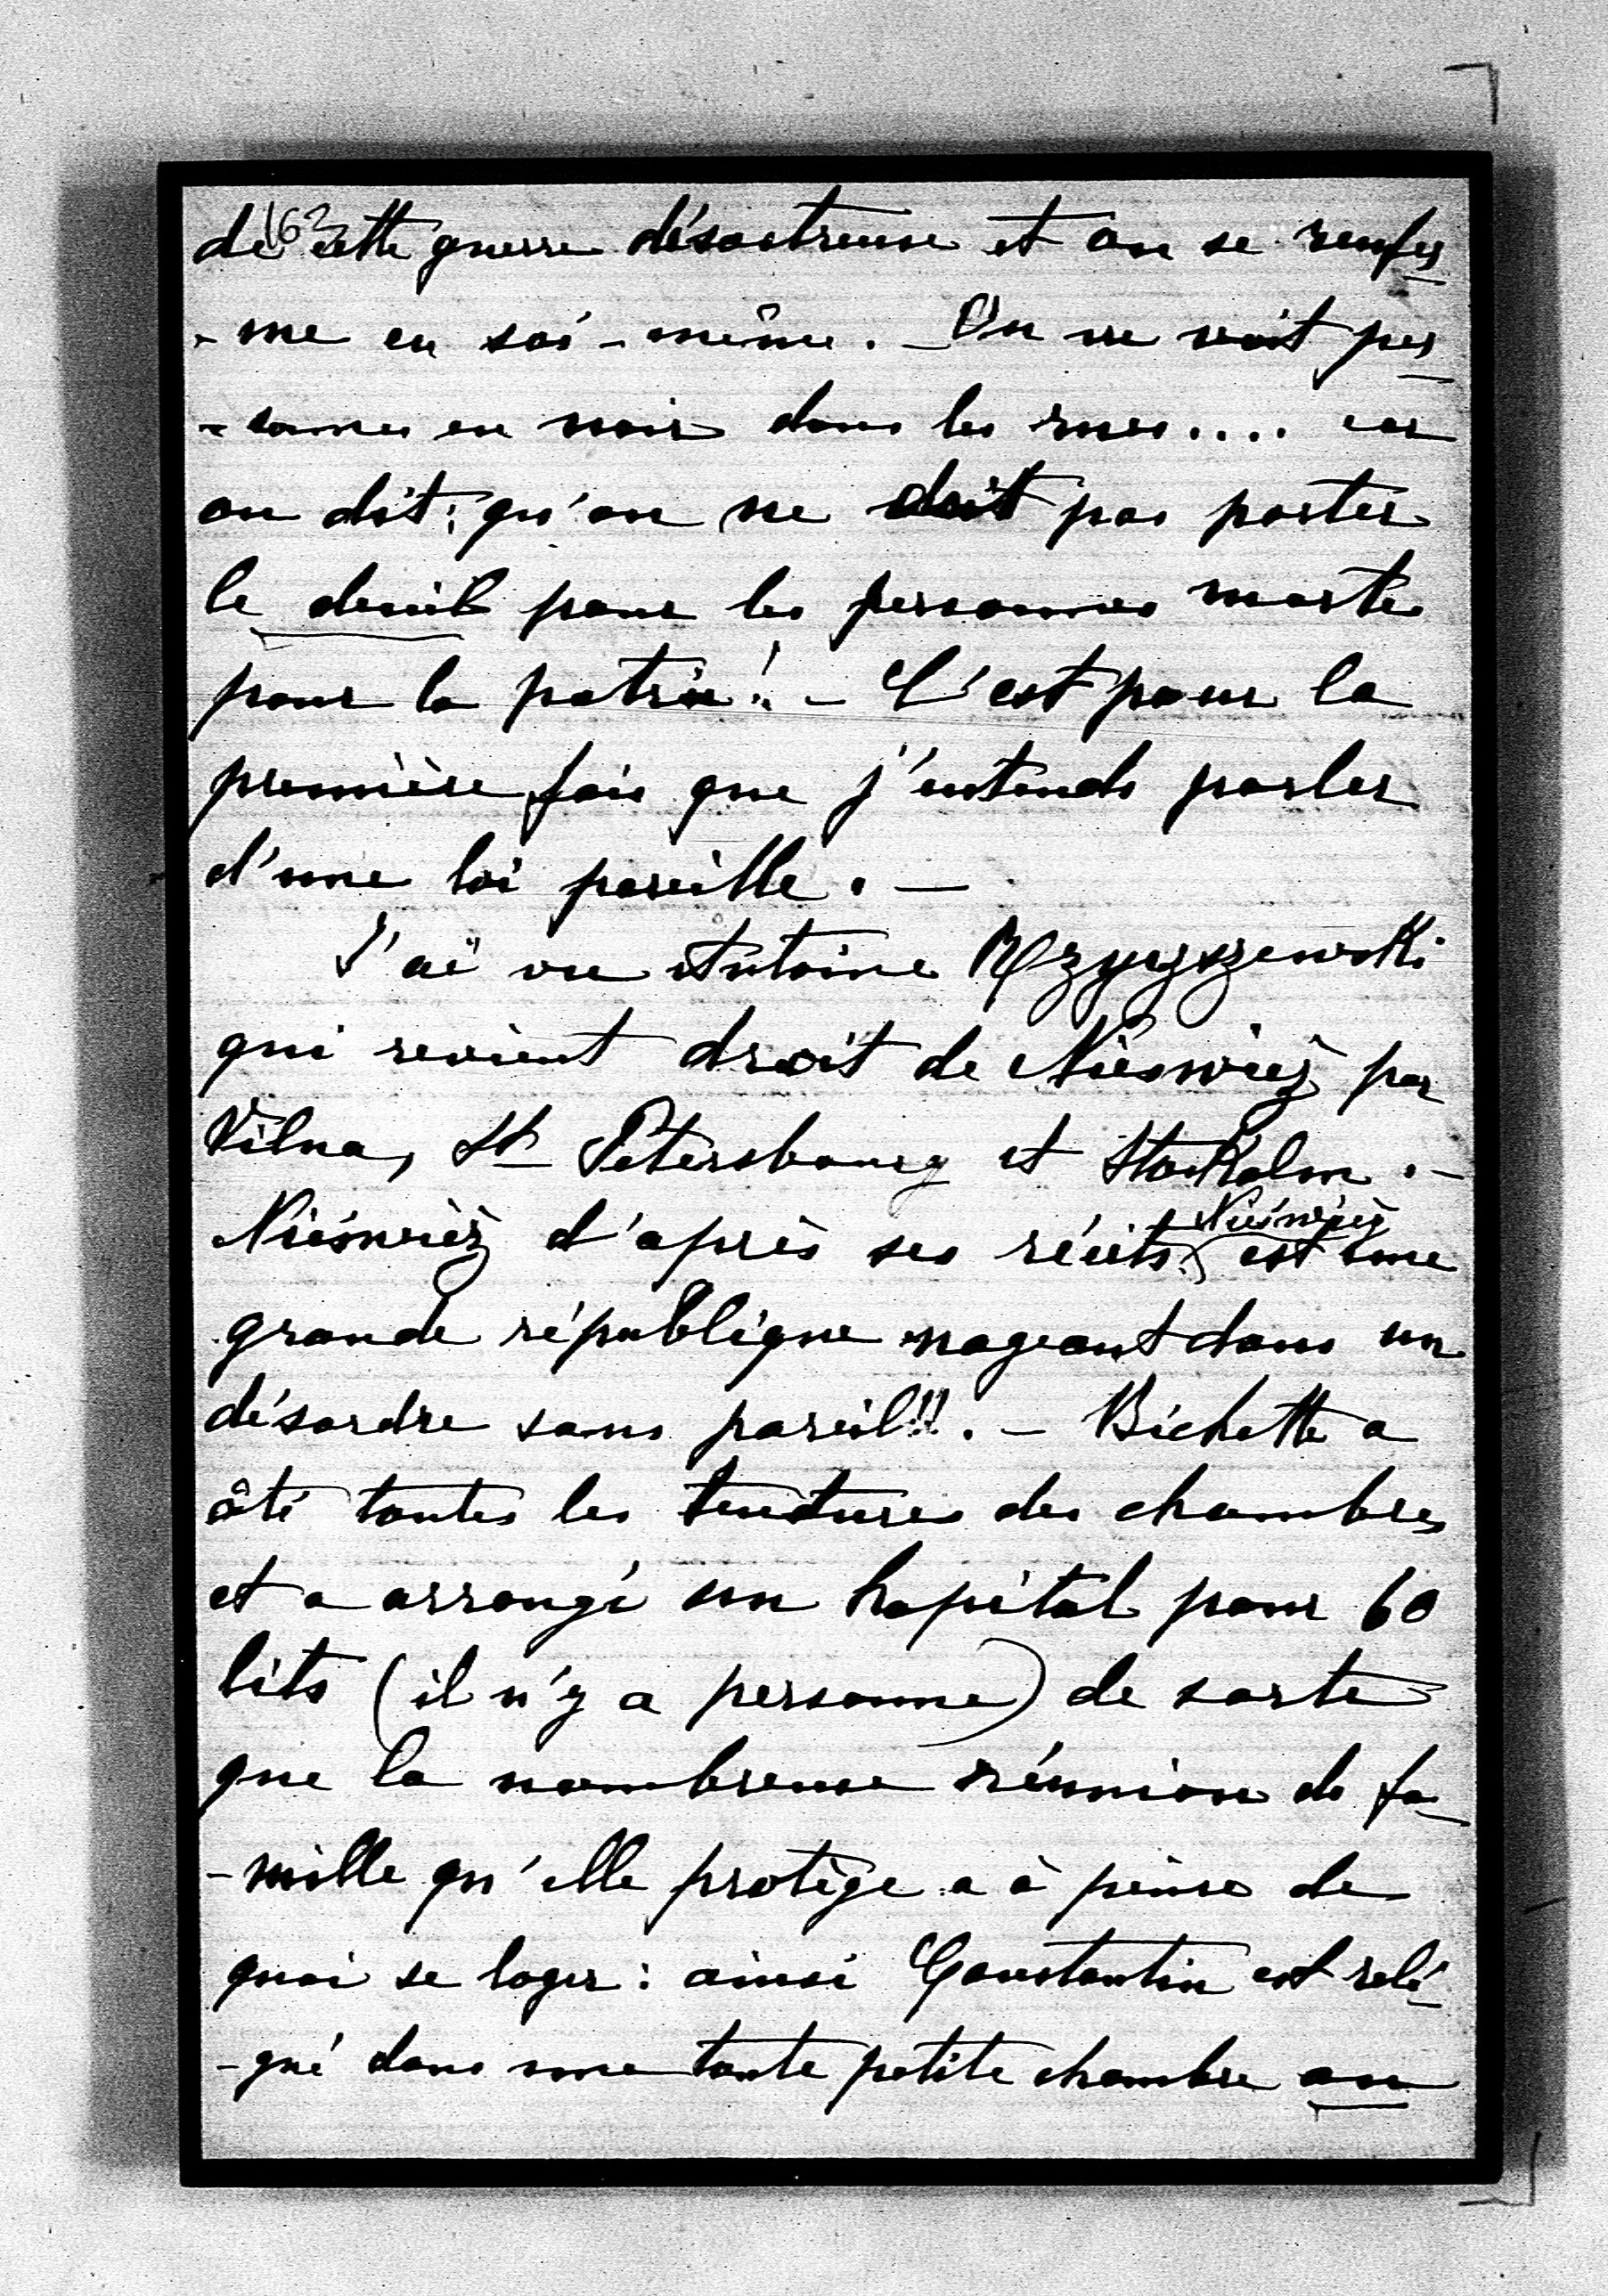 162
de cette guerre désastreuse et on se renfer
-me en soi-même. - On ne voit per
-sonnes en noir dans les rues.... car
on dit: qu'on ne doit pas porter
le deuil pour les personnes mortes
pour la patrie! - C'est pour la
première fois que j'entends parler
d'une loi pareille. -
J'ai vu Antoine
qui revient droit de Nieświeź par
Vilna, St Petersbourg et Stockolm. -
Nieświeź d'après ses récits Nieświeź est une
grande république nageant dans un
désordre sans pareil!!. - Bichette a
ôté toutes les tentures des chambres
et a arrangé un hopital pour 60
lits (il n'y a personne) de sorte
que la nombreuse réunion de fa
-mille qu'elle protège a à peine de
quoi se loger: ainsi Constantin est relé
-gué dans une toute petite chambre au